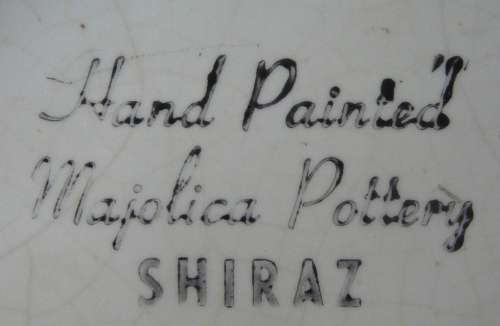 Hand Painted
Majolica Pottery
SHIRAZ